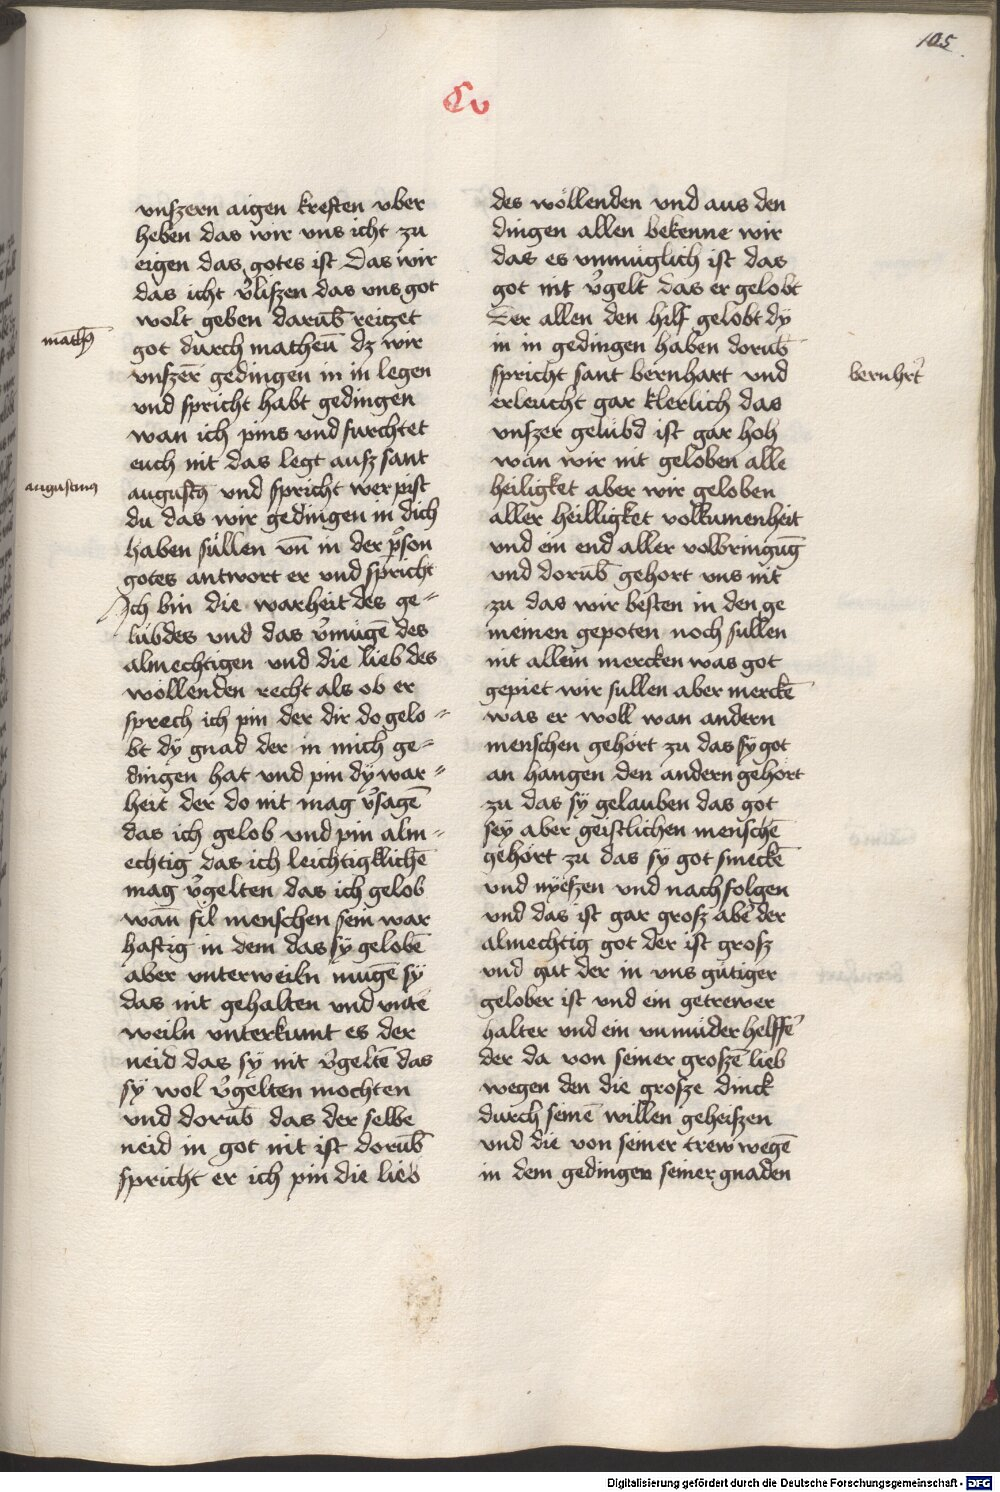 105
Cv
unszern aigen kreften vber
heben das wir vns icht zu
eigen das gotes ist Das wir
das icht v̉liszen das vns got
wolt geben darub̄ reitzet
got durch matheū dz wir
vnszer̄ gedingen in in legen
vnd spricht habt gedingen
wan ich pins vnd furchtet
euch nit das legt ausz sant
augustꝫ vnd spricht wer pist
du das wir gedingen in dich
haben süllen vn̄ in der p̉son
gotes antwort er vnd spricht
Ich bin die warheit des ge-
lübdes vnd das v̉mügē des
almechtigen vnd die lieb des
wöllenden recht als ob er
sprech ich pin der dir do gelo-
bt dÿ gnad der in mich ge-
dingen hat vnd pin dÿ war-
heit der do nit mag v̉sagē
das ich gelob vnd pin alm-
echtig das ich leichtigklichē
mag v̉gelten das ich gelob
wan̄ fil menschen sein war
haftig in dem das sÿ gelobē
aber vnterweiln mugē sÿ
das nit gehalten vnd vntē
weiln vnterkumt es der
neid das sÿ nit v̉geltē das
sÿ wol v̉gelten mochten
vnd dorub̄ das der selbe
neid in got nit ist dorub̄
spricht er ich pin die lieb
mathꝫ
augustinꝫ
des wöllenden vnd aus den
dingen allen bekenne wir
das es vnmüglich ist das
got nit v̉gelt das er gelobt
Der allen den hilf gelobt dÿ
in in gedingen haben dorub̄
spricht sant bernhart vnd
erleucht gar klerlich das
vnszer gelübd ist gar hoh
wan wir nit geloben alle
heiligket aber wir geloben
aller heilligket volkumenheit
vnd ein end aller volbringūg
vnd dorub̄ gehort vns nit
zu das wir besten in den ge
meinen gepoten noch sullen
nit allein mercken was got
gepiet wir sullen aber merckē
was er woll wan andern
menschen gehört zu das sÿ got
an hangen den andern gehört
zu das sÿ gelauben das got
seÿ aber geistlichen menschē
gehört zu das sÿ got smeckē
vnd nÿeszen vnd nachfolgen
vnd das ist gar grosz abē der
almechtig got der ist grosz
vnd gut der in vns gütiger
gelober ist vnd ein getrewer
halter vnd ein vnmüder helffē
der da von seiner groszē lieb
wegen den die grosze dinck
durch seinē willen geheiszen
vnd die von seiner trew wegē
in dem gedingen seiner gnaden
bernhrt̉
Digitalisierung gefördert durch die Deutsche Forschungsgemeinschaft - DFG